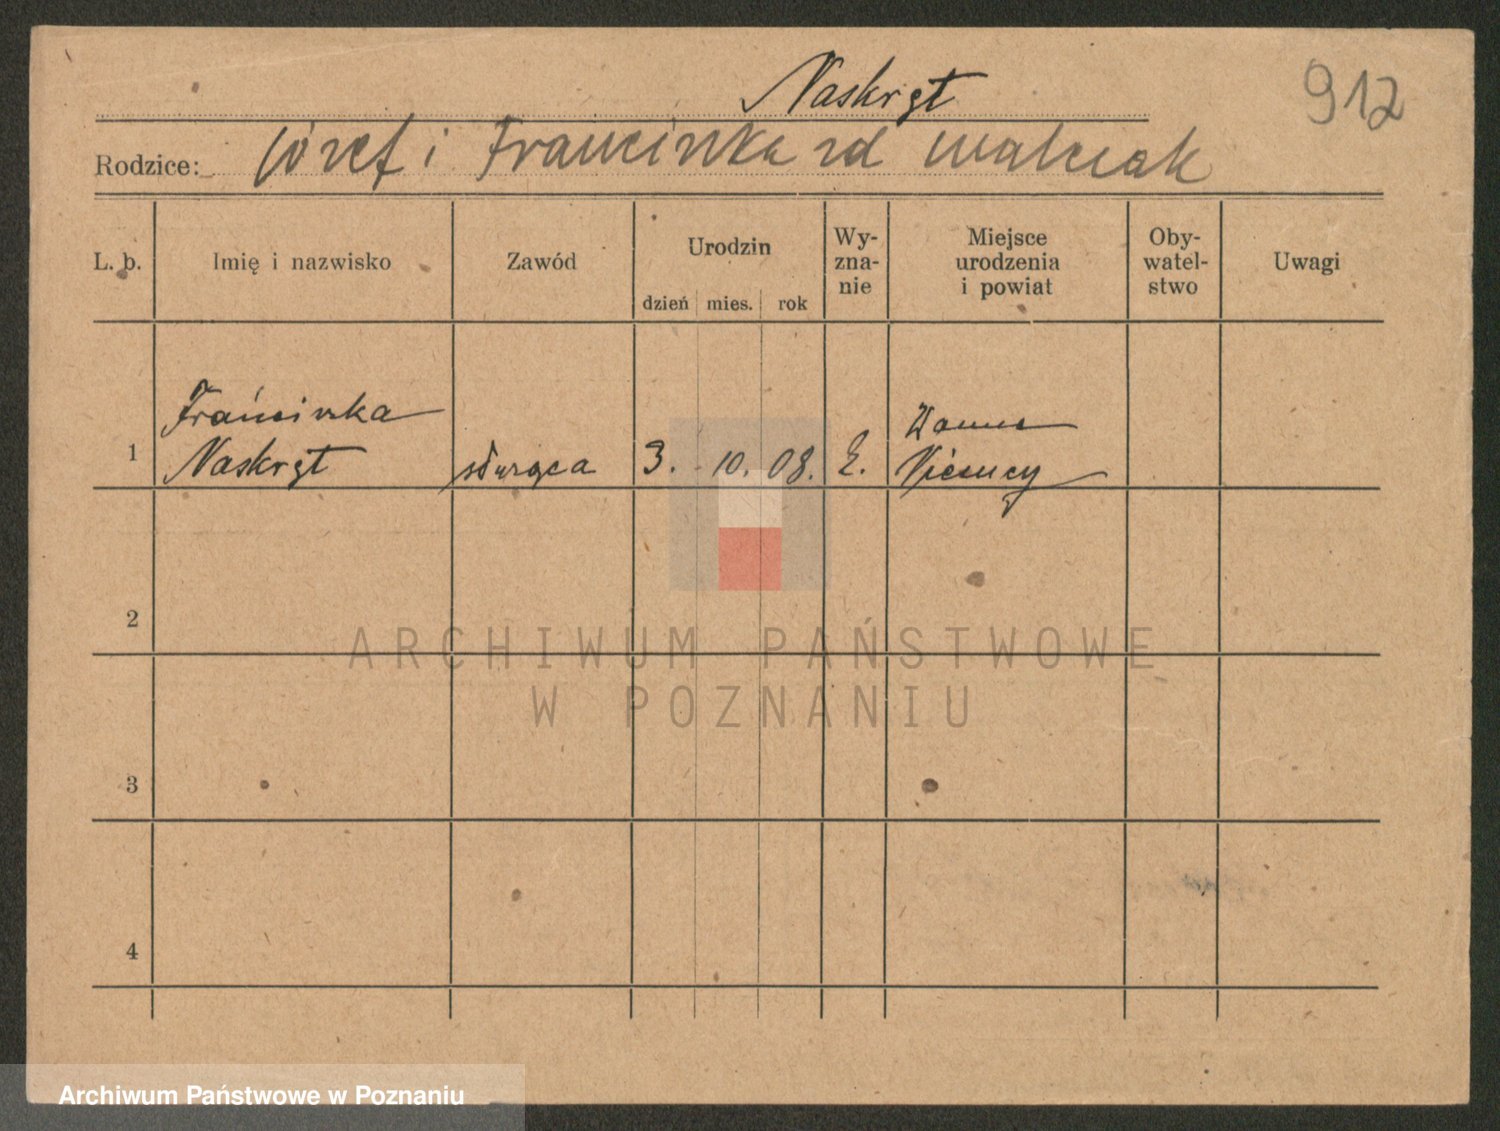 Naskręt
912
Rodzice: Józef i Franciszka zd Walczak
L. b.
Imię i nazwisko
Zawód
Urodzin
dzień mies. rok
Wy-
zna-
nie
Miejsce
urodzenia
i powiat
Oby-
watel-
stwo
Uwagi
1
Franciszka
Naskręt
służąca
3. 10. 08.
2
3
4
ARCHIWUM PAŃSTWOWE
W POZNANIU
Archiwum Państwowe w Poznaniu